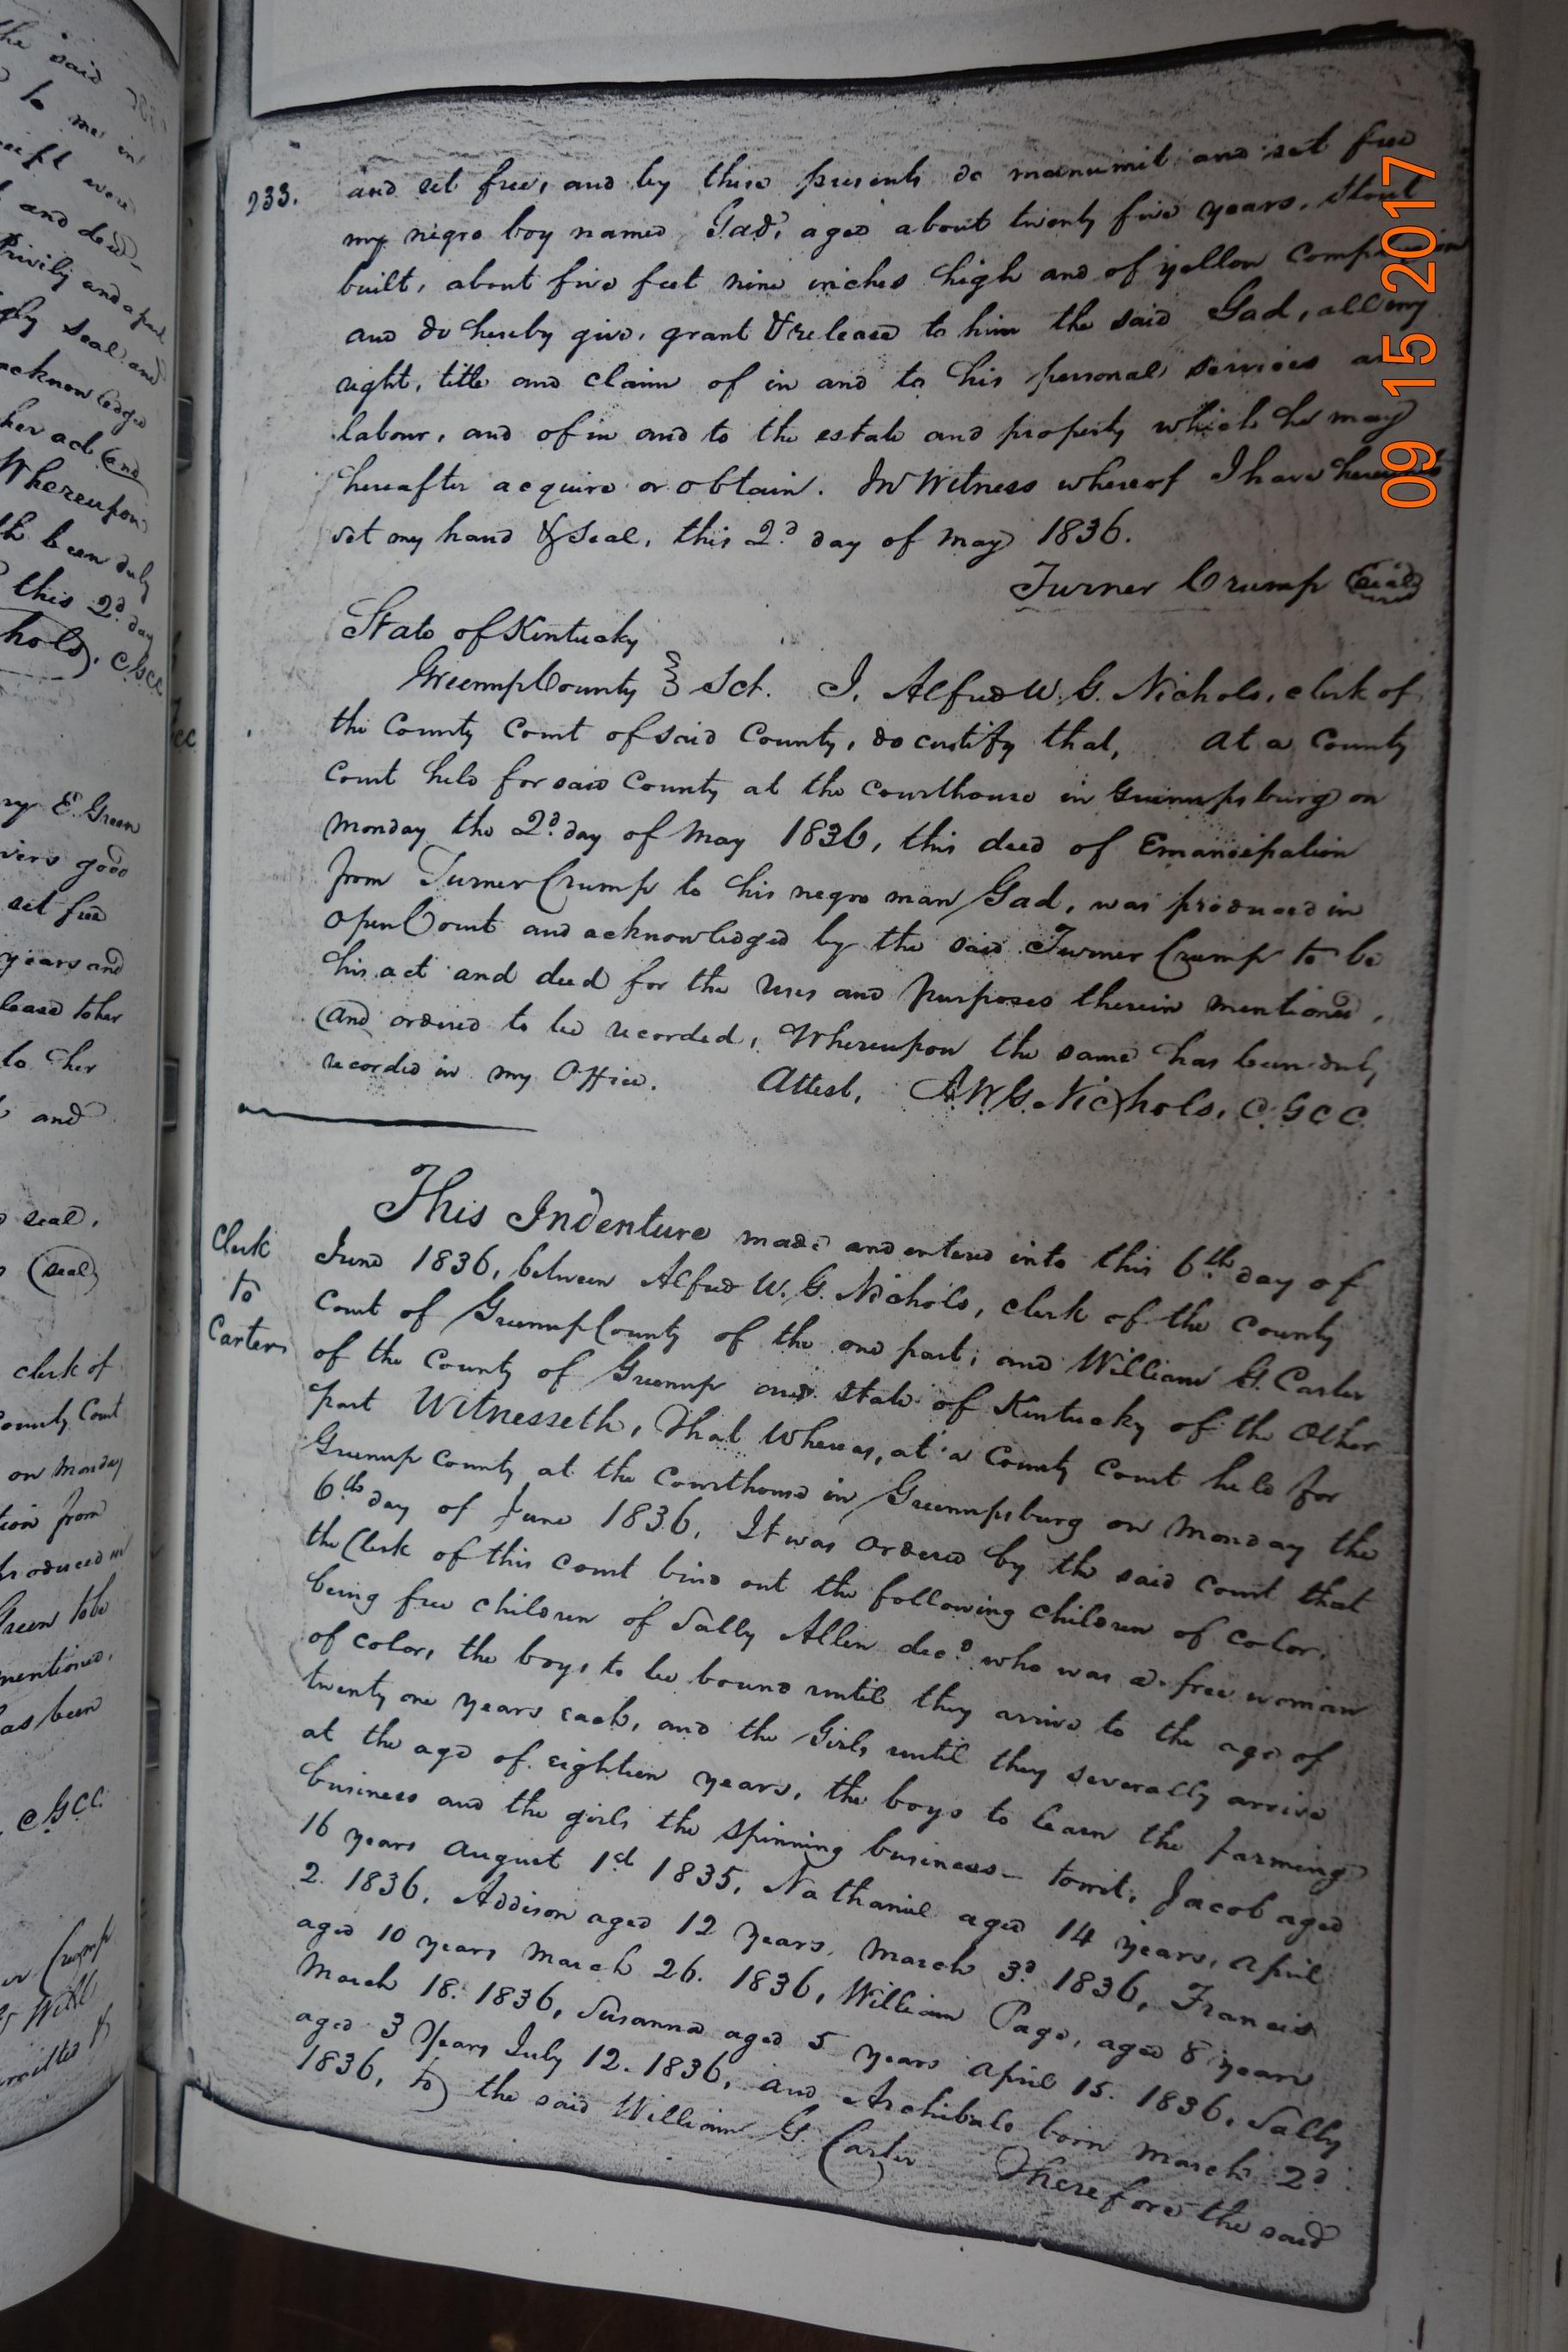 233.
and set free, and by these presents do manumit and set free
my negro boy named Gad, aged about twenty five years, stout
built, about five feet nine inches high and of yellow
and do hereby give, grant & release to him the said Gad, all my
right, title and claim of in and to his personal services
labour, and of in and to the estate and property which he may
hereafter acquire or obtain. In Witness whereof I have
set my hand & Seal, this 2d day of May 1836.
Turner Crump (Seal)
State of Kentucky
Greenup County } Sct. I, Alfred W. G. Nichols, clerk of
the County Court of said County, do certify that, at a County
Court held for said County at the Courthouse in Greenupsburg on
Monday the 2d day of May 1836, this deed of Emancipation
from Turner Crump to his negro man Gad, was produced in
Open Court and acknowledged by the said Turner Crump to be
his act and deed for the uses and purposes therein mentioned,
and ordered to be recorded, Whereupon the same has been duly
recorded in my Office. Attest, A.W.G. Nichols, C.G.C.C.
Clerk
to
Carter
This Indenture made and entered into this 6th day of
June 1836, between Alfred W. G. Nichols, clerk of the County
Court of Greenup County of the one part, and William G. Carter
of the County of Greenup and State of Kentucky of the Other
part Witnesseth, That Whereas, at a County Court held for
Greenup County at the Courthouse in Greenupsburg on Monday the
6th day of June 1836, It was ordered by the said Court that
the Clerk of this Court bind out the following children of color,
being free children of Sally Allen decd who was a free woman
of color, the boys to be bound until they arrive to the age of
twenty one years each, and the Girls until they severally arrive
at the age of eighteen years, the boys to learn the farming
business and the girls the Spinning business - towit, Jacob aged
16 years August 1st 1835, Nathaniel aged 14 years, April
2. 1836, Addison aged 12 years, March 3d 1836, Francis
aged 10 years March 26. 1836, William Page, aged 8 years
March 18. 1836, Susanna aged 5 years April 15. 1836, Sally
aged 3 Years July 12. 1836, and Archibald born March 2d
1836, to the said William G. Carter Therefore the said
09 15 2017
ry E. Green
vers good
set free
years and
lease to her
to her
and
seal,
(seal)
clerk of
County Court
on Monday
tion from
produced in
Green to be
mentioned,
as been
C.G.C.C.